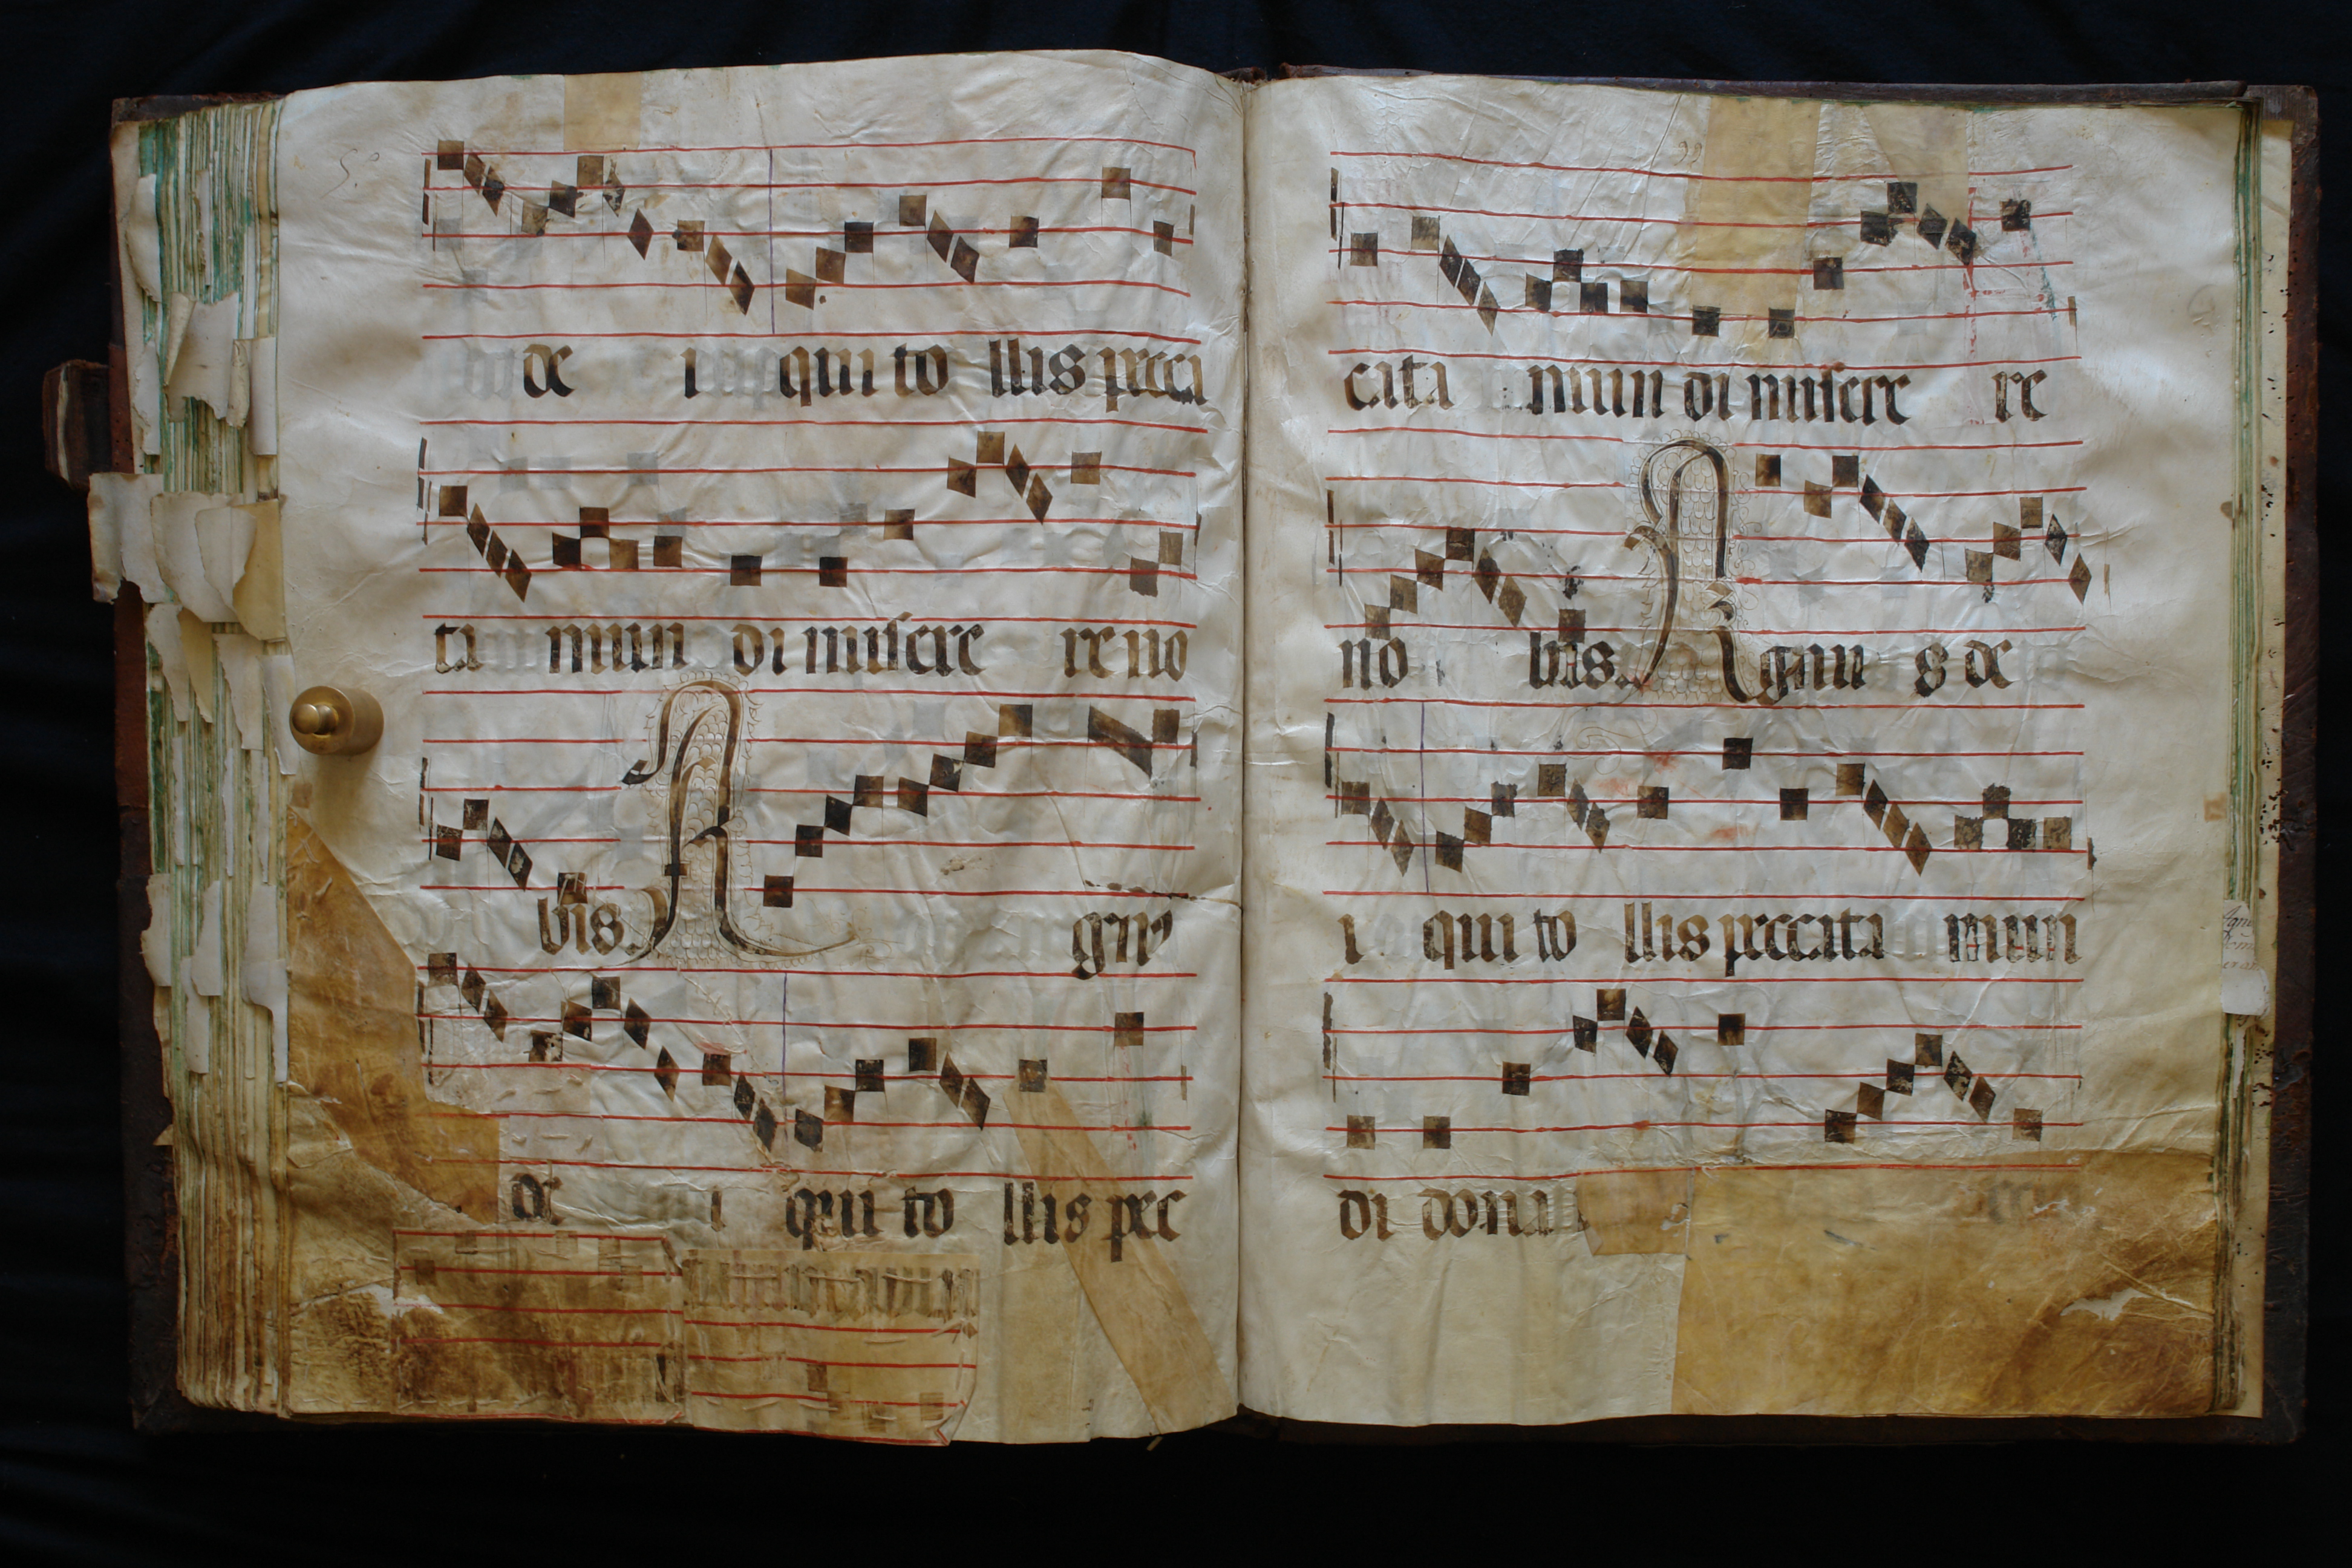 de i qui to llis pecca
ta mun di misere re no
bis. A gnus
de i qui to llis pec
99
cata mun di misere re
no bis. A gnu s de
i qui to llis peccata mun
di dona